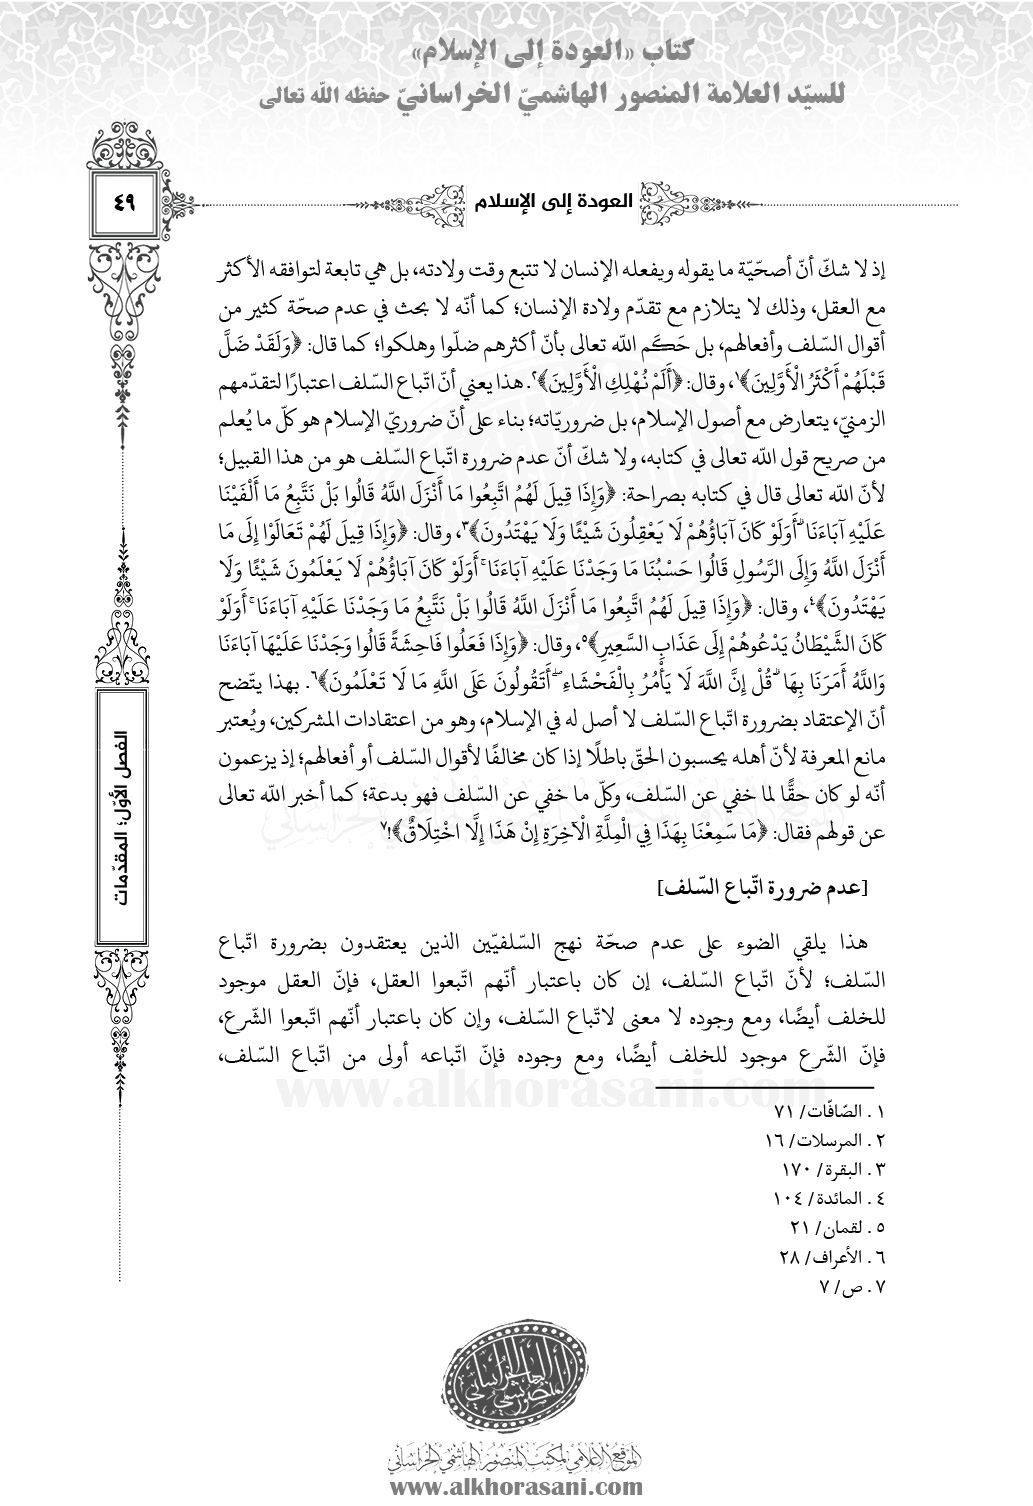 كتاب «العودة إلى الإسلام»
للسيّد العلامة المنصور الهاشميّ الخراسانيّ حفظه الله تعالى
٤٩
العودة إلى الإسلام
إذ لا شكّ أنّ أصحّيّة ما يقوله ويفعله الإنسان لا تتبع وقت ولادته، بل هي تابعة لتوافقه الأكثر
مع العقل، وذلك لا يتلازم مع تقدّم ولادة الإنسان؛ كما أنّه لا بحث في عدم صحّة كثير من
أقوال السّلف وأفعالهم، بل حَكَم الله تعالى بأنّ أكثرهم ضلّوا وهلكوا؛ كما قال: ﴿وَلَقَدْ ضَلَّ
قَبْلَهُمْ أَكْثَرُ الْأَوَّلِينَ﴾١، وقال: ﴿أَلَمْ نُهْلِكِ الْأَوَّلِينَ﴾٢. هذا يعني أنّ اتّباع السّلف اعتبارًا لتقدّمهم
الزمنيّ، يتعارض مع أصول الإسلام، بل ضروريّاته؛ بناء على أنّ ضروريّ الإسلام هو كلّ ما يُعلم
من صريح قول الله تعالى في كتابه، ولا شكّ أنّ عدم ضرورة اتّباع السّلف هو من هذا القبيل؛
لأنّ الله تعالى قال في كتابه بصراحة: ﴿وَإِذَا قِيلَ لَهُمُ اتَّبِعُوا مَا أَنْزَلَ اللَّهُ قَالُوا بَلْ نَتَّبِعُ مَا أَلْفَيْنَا
عَلَيْهِ آبَاءَنَا ۗ أَوَلَوْ كَانَ آبَاؤُهُمْ لَا يَعْقِلُونَ شَيْئًا وَلَا يَهْتَدُونَ﴾٣، وقال: ﴿وَإِذَا قِيلَ لَهُمْ تَعَالَوْا إِلَى مَا
أَنْزَلَ اللَّهُ وَإِلَى الرَّسُولِ قَالُوا حَسْبُنَا مَا وَجَدْنَا عَلَيْهِ آبَاءَنَا ۚ أَوَلَوْ كَانَ آبَاؤُهُمْ لَا يَعْلَمُونَ شَيْئًا وَلَا
يَهْتَدُونَ﴾٤، وقال: ﴿وَإِذَا قِيلَ لَهُمُ اتَّبِعُوا مَا أَنْزَلَ اللَّهُ قَالُوا بَلْ نَتَّبِعُ مَا وَجَدْنَا عَلَيْهِ آبَاءَنَا ۚ أَوَلَوْ
كَانَ الشَّيْطَانُ يَدْعُوهُمْ إِلَى عَذَابِ السَّعِيرِ﴾٥، وقال: ﴿وَإِذَا فَعَلُوا فَاحِشَةً قَالُوا وَجَدْنَا عَلَيْهَا آبَاءَنَا
وَاللَّهُ أَمَرَنَا بِهَا ۗ قُلْ إِنَّ اللَّهَ لَا يَأْمُرُ بِالْفَحْشَاءِ ۖ أَتَقُولُونَ عَلَى اللَّهِ مَا لَا تَعْلَمُونَ﴾٦. بهذا يتّضح
أنّ الإعتقاد بضرورة اتّباع السّلف لا أصل له في الإسلام، وهو من اعتقادات المشركين، ويُعتبر
مانع المعرفة لأنّ أهله يحسبون الحقّ باطلًا إذا كان مخالفًا لأقوال السّلف أو أفعالهم؛ إذ يزعمون
أنّه لو كان حقًّا لما خفي عن السّلف، وكلّ ما خفي عن السّلف فهو بدعة؛ كما أخبر الله تعالى
عن قولهم فقال: ﴿مَا سَمِعْنَا بِهَذَا فِي الْمِلَّةِ الْآخِرَةِ إِنْ هَذَا إِلَّا اخْتِلَاقٌ﴾!٧
[عدم ضرورة اتّباع السّلف]
هذا يلقي الضوء على عدم صحّة نهج السّلفيّين الذين يعتقدون بضرورة اتّباع
السّلف؛ لأنّ اتّباع السّلف، إن كان باعتبار أنّهم اتّبعوا العقل، فإنّ العقل موجود
للخلف أيضًا، ومع وجوده لا معنى لاتّباع السّلف، وإن كان باعتبار أنّهم اتّبعوا الشّرع،
فإنّ الشّرع موجود للخلف أيضًا، ومع وجوده فإنّ اتّباعه أولى من اتّباع السّلف،
١ . الصّافّات/ ٧١
٢ . المرسلات/ ١٦
٣ . البقرة/ ١٧٠
٤ . المائدة/ ١٠٤
٥ . لقمان/ ٢١
٦ . الأعراف/ ٢٨
٧ . ص/ ٧
الفصل الأوّل؛ المقدّمات
www.alkhorasani.com
المنصور الهاشمي الخراساني
الموقع الإعلامي لمكتب المنصور الهاشمي الخراساني
www.alkhorasani.com